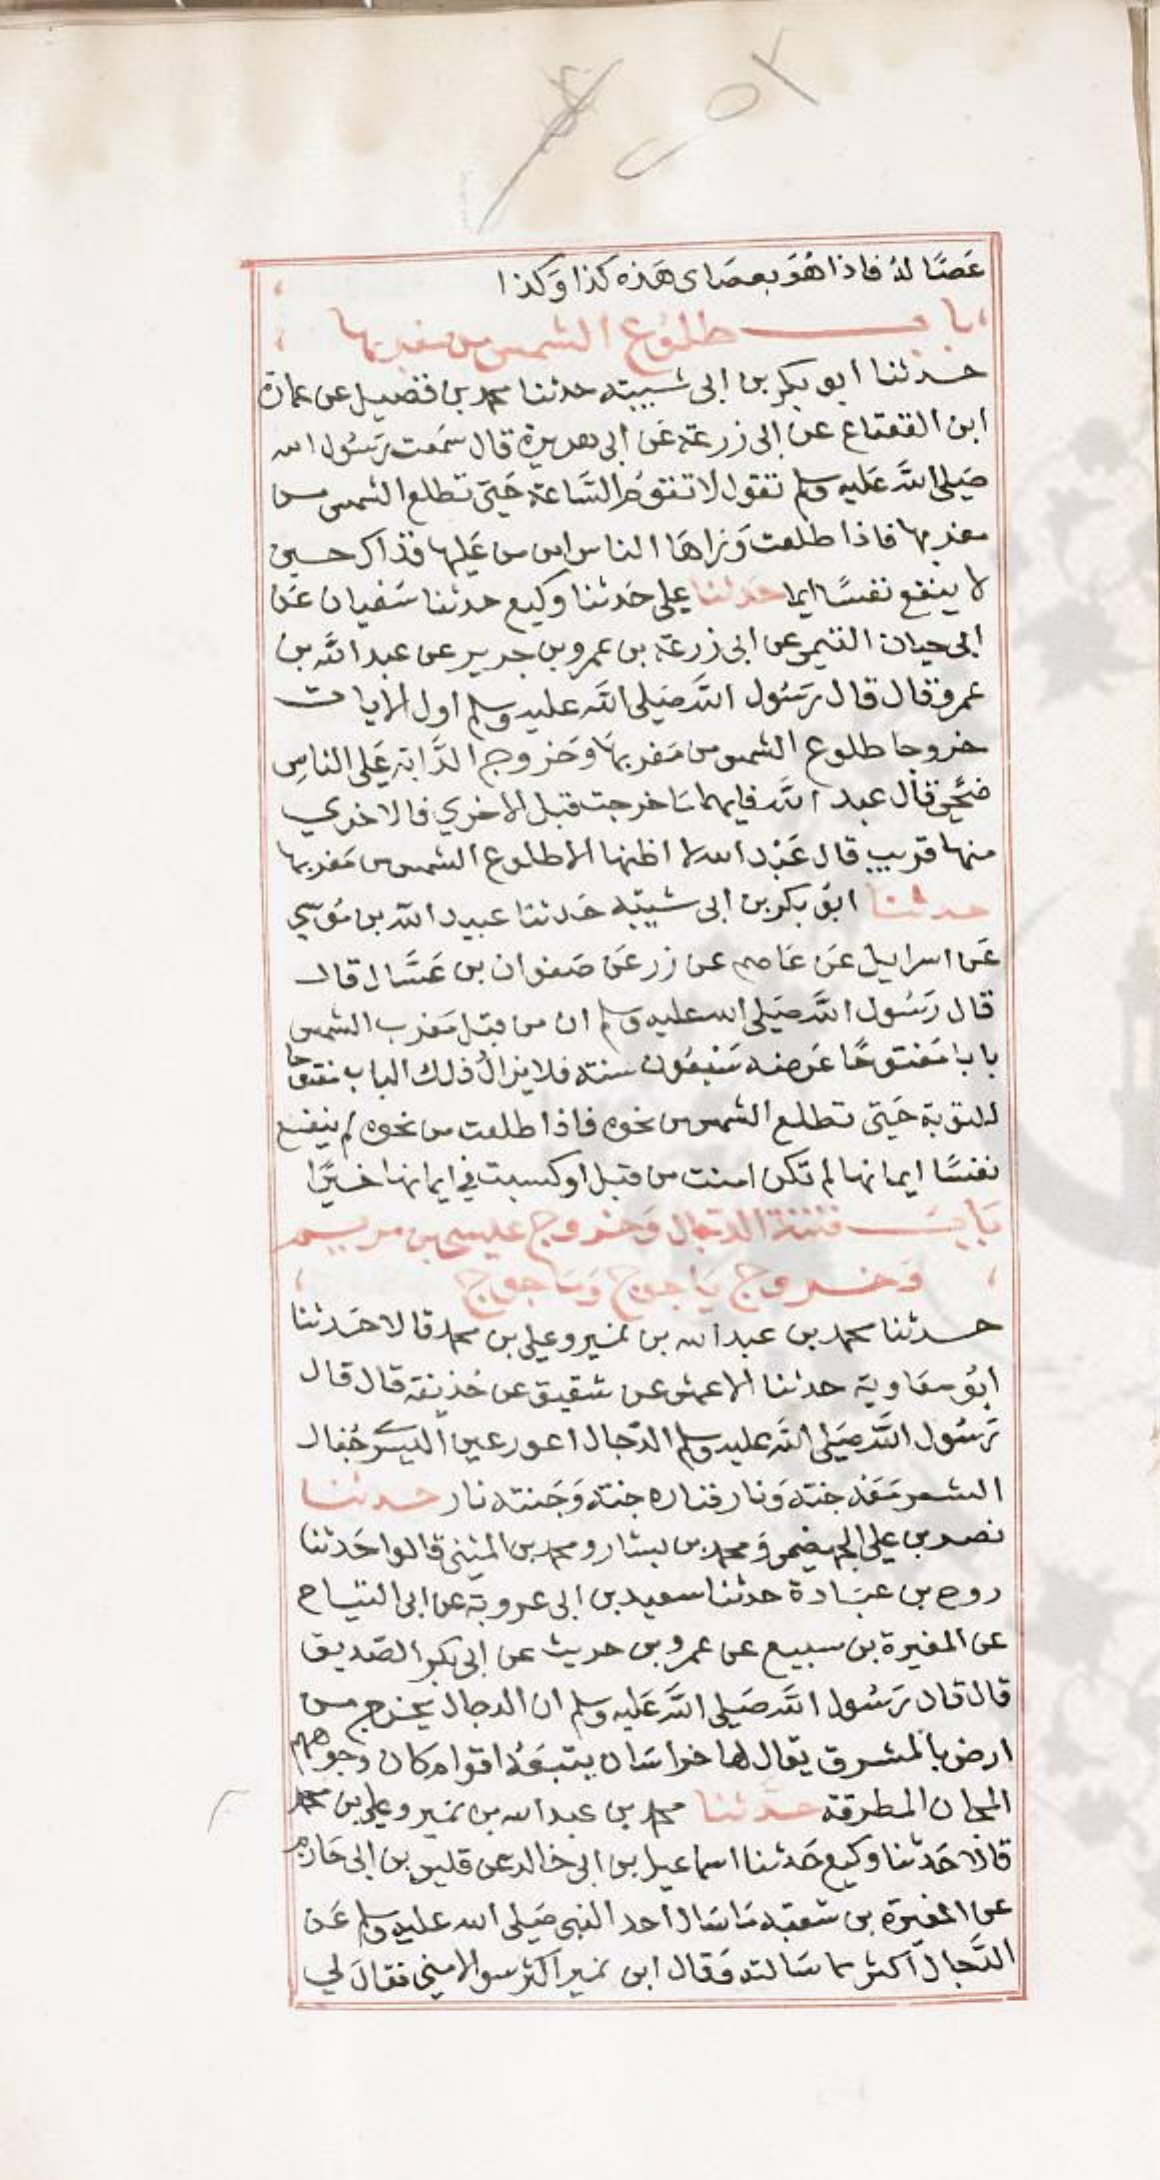 عَصًا لهُ فاذا هُوَ بعصَاى هَذه كذا وَكذا
باب طلوُع الشمس من مغربها
حدثنا ابو بكر بن ابى شيبته حدثنا محمد بن فضيل عن عمارة
ابن القعقاع عن ابى زرعة عَن ابى هريرة قال سَمعت رَسُول الله
صَلى اللهَ عَليه وسلم تقول لا تقوُم السَّاعة حَتى تطلع الشمس من
مغربها فاذا طلعت وَراهَا الناس امن من عَليها فذاك حين
لا ينفع نفسًا ايما حَدثنا على حَدثنا وكيع حدثنا سَفيان عَن
ابى حيان التيمى عن ابى زرعة بن عمرو بن جرير عن عبد الله بن
عمرو قال قال رَسُول اللهَ صَلى اللهَ عليه وسلم اول الايات
خروجا طلوع الشمس من مَغربهَا وَخروج الدَّابة عَلى الناسِ
ضحًى قال عبد اللهَ فايهما مَا خرجت قبل الاخري فالاخري
منها قريب قال عَبْد الله لا اظنها الا طلوع الشمس من مَغربها
حدثنا ابوُ بكر بن ابى شيبة حَدثنا عبيد الله بن مُوسي
عَن اسرايل عَن عَاصم عن زر عَن صَفوان بن عَسَّال قال
قال رَسُول اللهَ صَلى الله عليه وسلم ان من قبل مَغرب الشمس
بابا مَفتوحًا عَرضه سَبعُون سنة فلا يزالُ ذلك الباب مفتوحًا
للتوبة حَتى تطلع الشمس من نحوه فاذا طلعت من نحوه لم ينفع
نفسًا ايمانها لم تكن امنت من قبل او كسبت في ايمانها خيرًا
بَابَ فتنة الدجال وَخروج عيسى بن مريم
وَخروج يَاجوج وَمَاجوج
حدثنا محمد بن عبد الله بن نمير وعلي بن محمد قالا حَدثنا
ابوُ معَاوية حدثنا الاعمش عن شقيق عن حُذيفة قال قال
رَسُول اللهَ صَلى اللهَ عليه وسلم الدّجال اعور عين اليسرى جُفال
الشعر مَعَه جنة وَنار فناره جنة وَجَنته نار حدثنا
نصر بن علي الجهضمى وَمحمد بن بشار ومحمد بن المثنى قالوا حَدثنا
روح بن عبَادة حدثنا سعيد بن ابى عروبة عن ابى التياح
عن المغيرة بن سبيع عن عمرو بن حريث عن ابى بكر الصّديق
قال قال رَسُول اللهَ صَلى اللهَ عَليه وسلم ان الدجال يخرج من
ارض بالمشرق يقال لها خراسَان يتبعَهُ اقوام كان وجوههم
المجان المطرقة حدَّثنا محمد بن عبد الله بن نمير وعلي بن محمد
قالا حَدثنا وكيع حَدثنا اسماعيل بن ابى خالد عن قيس بن ابى حَازم
عن المغيرة بن شعبه مَا سَال احد النبى صَلى الله عليه وسلم عَن
الدَّجال اكثر مما سَالته وَقال ابن نمير اكثر سوالا منى فقال لي